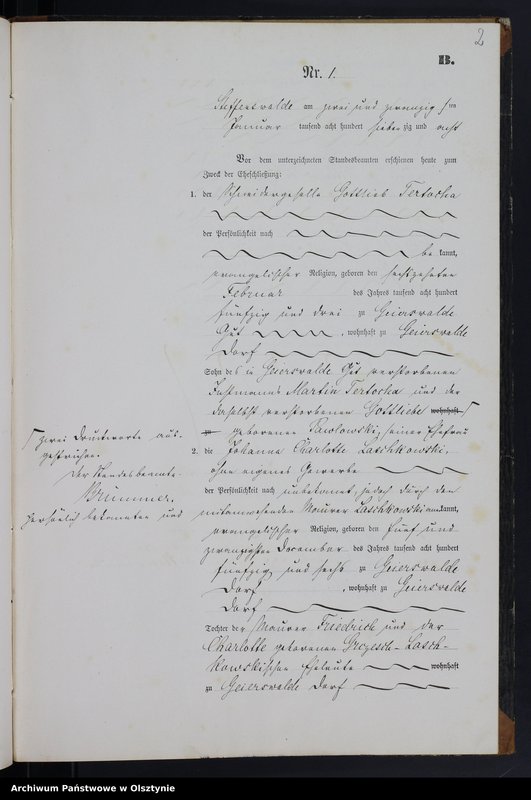 2
B.
Nr. 1.
Seifferswalde am zwei und zwanzig sten
Januar tausend acht hundert sieben zig und acht
Vor dem unterzeichneten Standesbeamten erschienen heute zum
Zweck der Eheschließung:
1. der Schneidergeselle Gottlieb Tertocha
der Persönlichkeit nach
be kannt,
evangelischer Religion, geboren den sechszehnten
Februar des Jahres tausend acht hundert
fünfzig und drei zu Geierswalde
Gut, wohnhaft zu Geierswalde
Dorf
Sohn des in Geierswalde Gut verstorbenen
Instmanns Martin Tertocha und der
daselbst verstorbenen Gottliebe wohnhaft
zu geborenen Pawlowski, seiner Ehefrau
2. die Johanna Charlotte Laschkowski,
ohne eigenes Gewerbe
der Persönlichkeit nach unbekannt, jedoch durch den
mitanwesenden Maurer Laschkowski anerkannt,
evangelischer Religion, geboren den fünf und
zwanzigsten December des Jahres tausend acht hundert
fünfzig und sechs zu Geierswalde
Dorf, wohnhaft zu Geierswalde
Dorf
Tochter der Maurer Friedrich und der
Charlotte geborenen Grezesch-Lasch-
kowskischen Eheleute wohnhaft
zu Geierswalde Dorf
zwei Druckworte aus-
gestrichen.
Der Standesbeamte.
Brümmer.
persönlich bekannten und
Archiwum Państwowe w Olsztynie